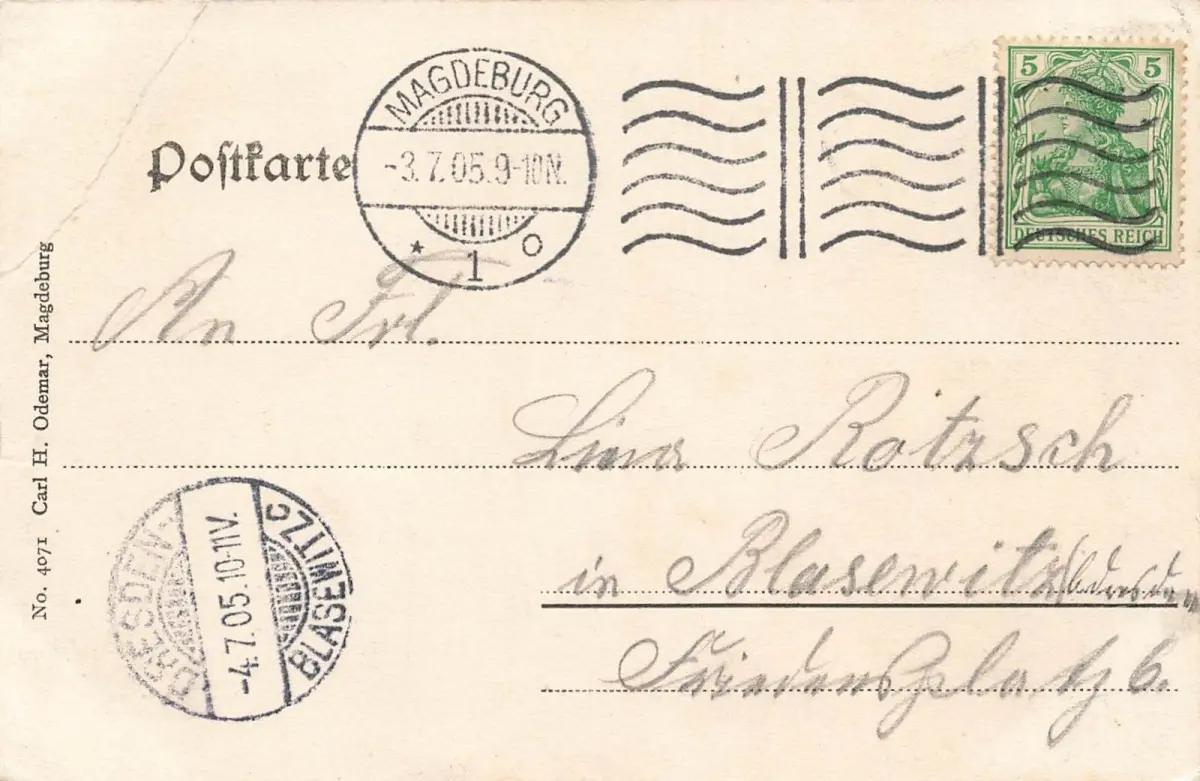 MAGDEBURG
-3.7.05.9-10N.
* 1 o
5 5
DEUTSCHES REICH
Poſtkarte
An Frl.
Lina Rotzsch
in Blasewitz
Friedensplatz 6.
No. 4071 Carl H. Odemar, Magdeburg
DRESDEN-
-4.7.05.10-11V.
BLASEWITZ c